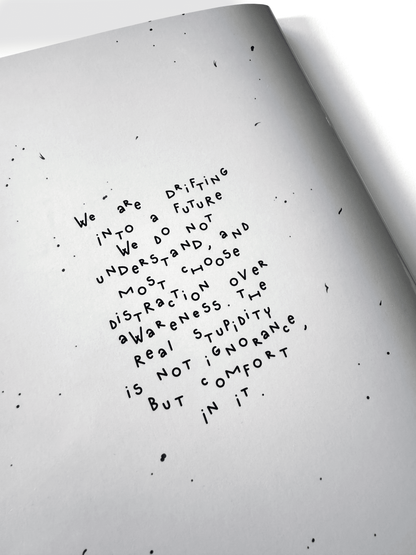 We are DRiFTiNG
iNTO a FUTURE
We DO NOT
uNDERSTaND, aND
MOST cHOOSe
DiSTRacTiON OVeR
aWaReNeSS. THe
Real STUPiDiTY
iS NOT iGNORaNce,
BUT cOMFORT
iN iT.